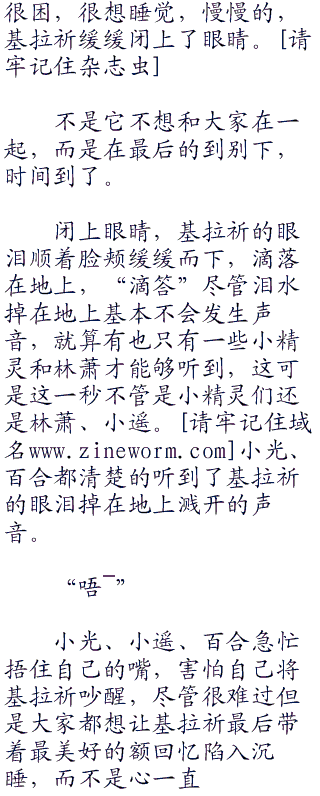 很困，很想睡觉，慢慢的，
基拉祈缓缓闭上了眼睛。[请
牢记住杂志虫]
不是它不想和大家在一
起，而是在最后的到别下，
时间到了。
闭上眼睛，基拉祈的眼
泪顺着脸颊缓缓而下，滴落
在地上，“滴答”尽管泪水
掉在地上基本不会发生声
音，就算有也只有一些小精
灵和林萧才能够听到，这可
是这一秒不管是小精灵们还
是林萧、小遥。[请牢记住域
名www.zineworm.com]小光、
百合都清楚的听到了基拉祈
的眼泪掉在地上溅开的声
音。
“唔¯”
小光、小遥、百合急忙
捂住自己的嘴，害怕自己将
基拉祈吵醒，尽管很难过但
是大家都想让基拉祈最后带
着最美好的额回忆陷入沉
睡，而不是心一直